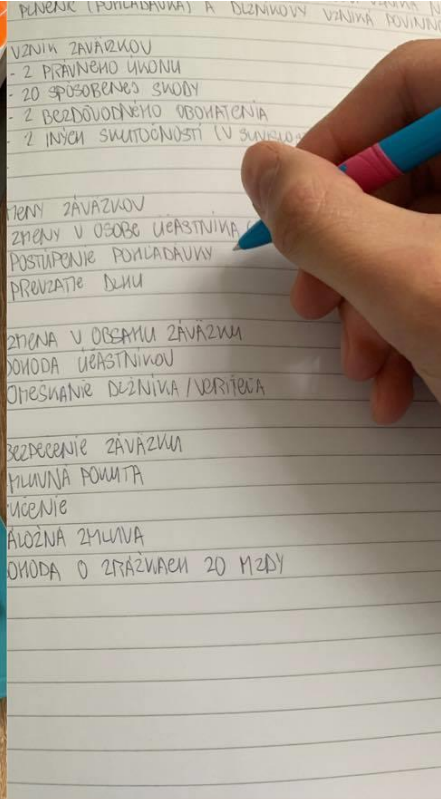 PLNENIE (POHĽADÁVKA) A DLŽNÍKOVI VZNIKÁ
VZNIK ZÁVÄZKOV
- Z PRÁVNEHO ÚKONU
- ZO SPÔSOBENEJ ŠKODY
- Z BEZDÔVODNÉHO OBOHATENIA
- Z INÝCH SKUTOČNOSTÍ (V
MENY ZÁVÄZKOV
ZMENY V OSOBE ÚČASTNÍKA (
POSTÚPENIE POHĽADÁVKY
PREVZATIE DLHU
ZMENA V OBSAHU ZÁVÄZKU
DOHODA ÚČASTNÍKOV
OMEŠKANIE DLŽNÍKA/VERITEĽA
BEZPEČENIE ZÁVÄZKU
MLUVNÁ POKUTA
UČENIE
ÁLOŽNÁ ZMLUVA
OHODA O ZRÁŽKACH ZO MZDY